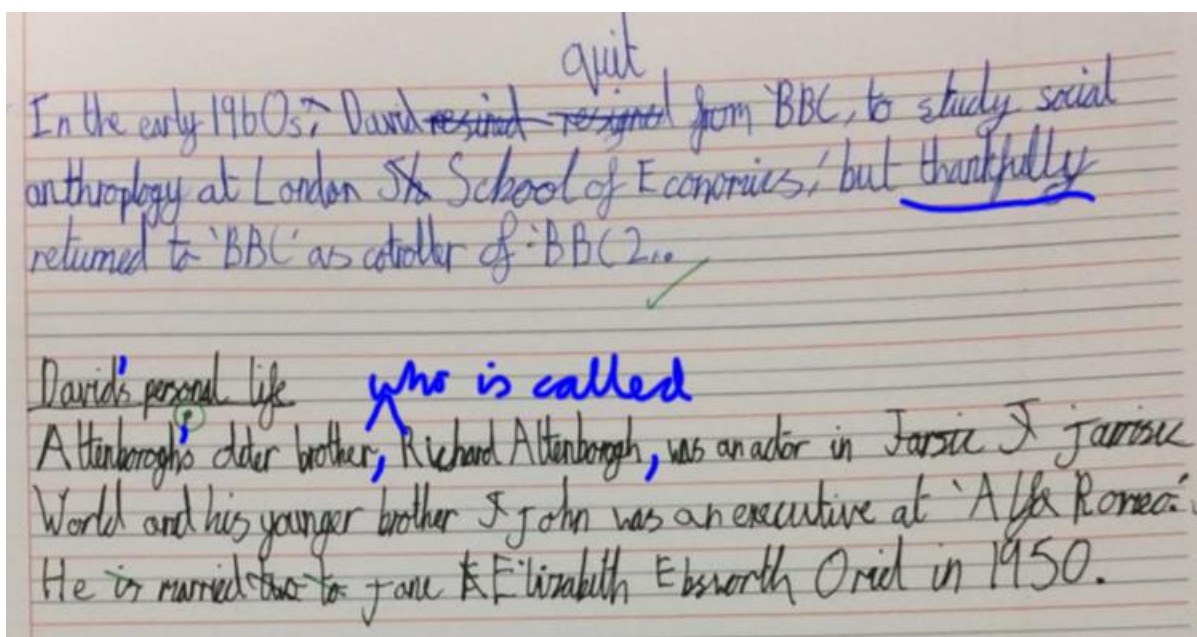 quit
In the early 1960s, David resined resigned from 'BBC, to study social
anthroplogy at London Sk School of Economics, but thankfully
returned to 'BBC' as cotroller of 'BBC2...
David's personal life who is called
Attenborogh's older brother, Richard Attenborogh, was an actor in Jarsic J jarrisic
World and his younger brother J john was an executive at 'Alfa Romeo.'
He is married two to jane E Elizabeth Ebsworth Oriel in 1950.